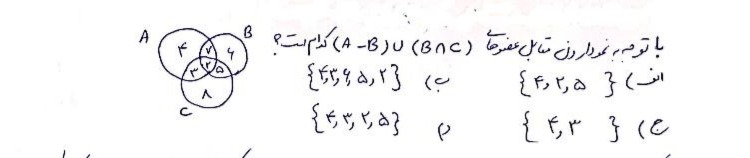 با توجه نمودار ون مقابل عضوهای (A - B) ∪ (B ∩ C) کدام است؟
الف) {۴, ۲, ۵}
ب) {۴, ۳, ۶, ۵, ۲}
ج) {۴, ۳}
د) {۴, ۳, ۲, ۵}
A
B
۴
۷
۶
۳
۲
۵
۸
C